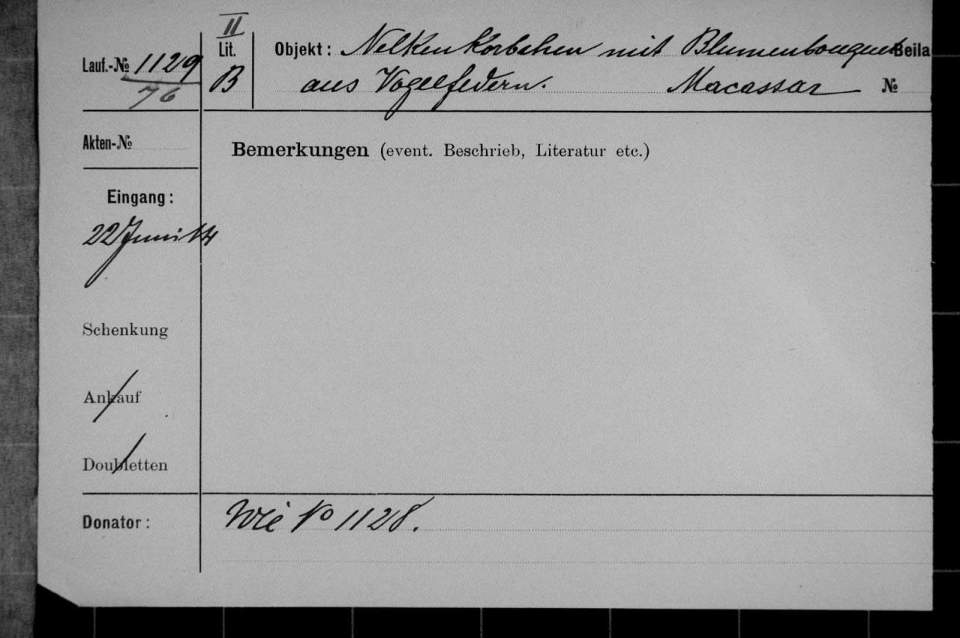 II
Lauf.-№ 1129
76
Lit. B
Objekt: Nelkenkörbchen mit Blumenbouquet Beila
aus Vogelfedern. Macassar №
Akten-№
Bemerkungen (event. Beschrieb, Literatur etc.)
Eingang:
22 Juni
Schenkung
Ankauf
Doubletten
Donator: Wie No 1128.